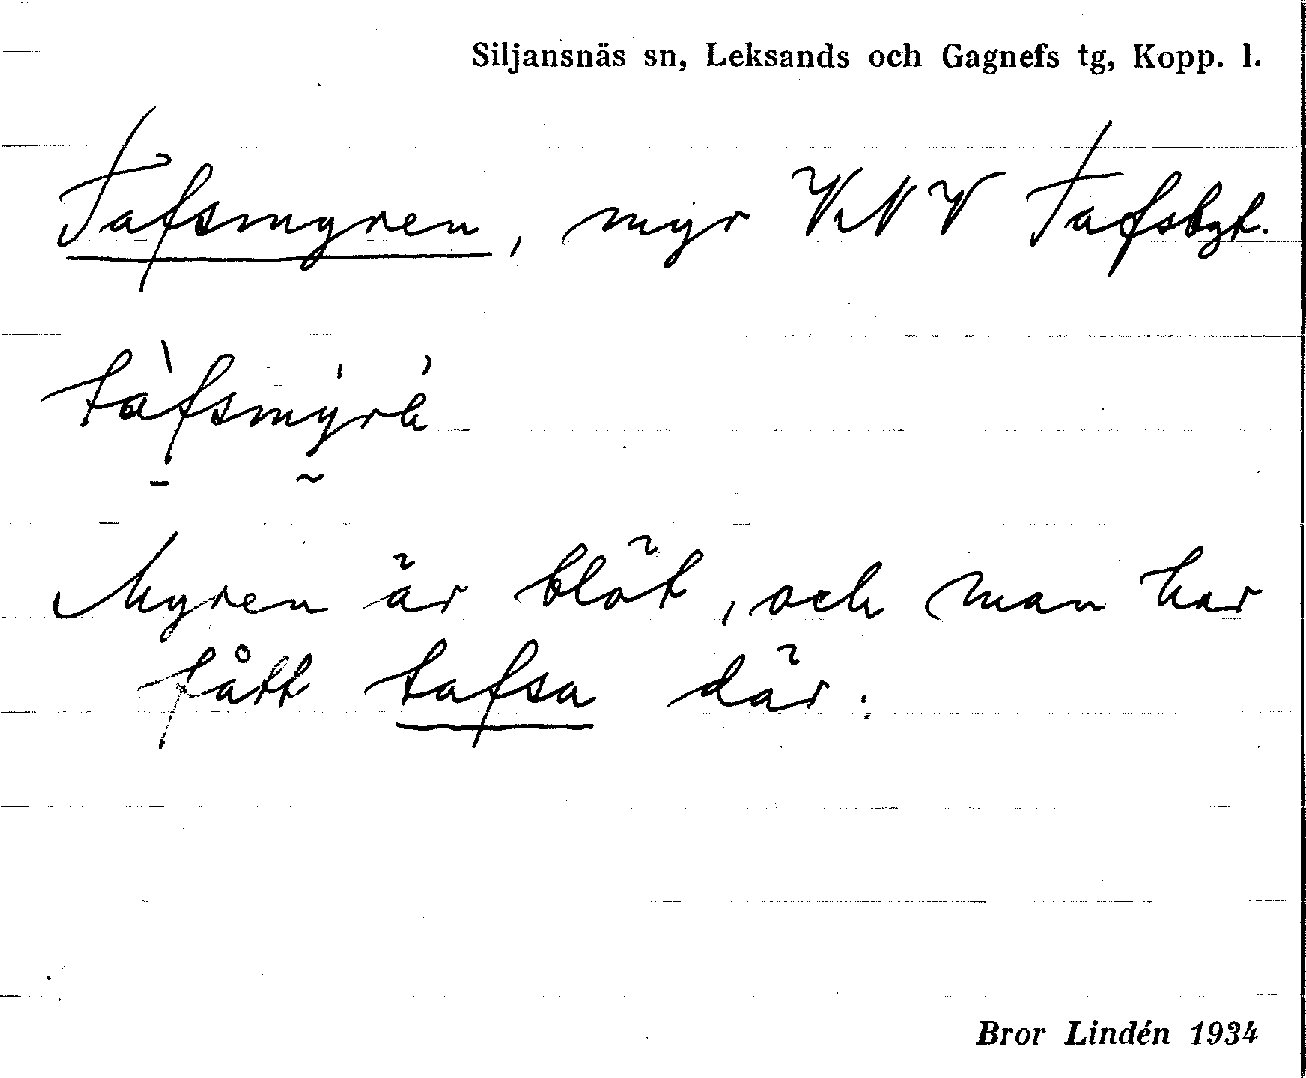 Siljansnäs sn, Leksands och Gagnefs tg, Kopp. l.
Tafsmyren, myr VNV Tafsbgt.
tàfsmy̍rè̍
Myren är blöt, och man har
fått tafsa där.
Bror Lindén 1934